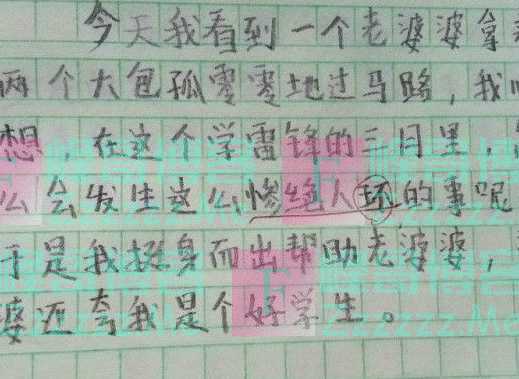 今天我看到一个老婆婆拿
两个大包孤零零地过马路，我
想，在这个学雷锋的三月里，
么会发生这么惨绝人坏的事呢
于是我挺身而出帮助老婆婆，
婆还夸我是个好学生。